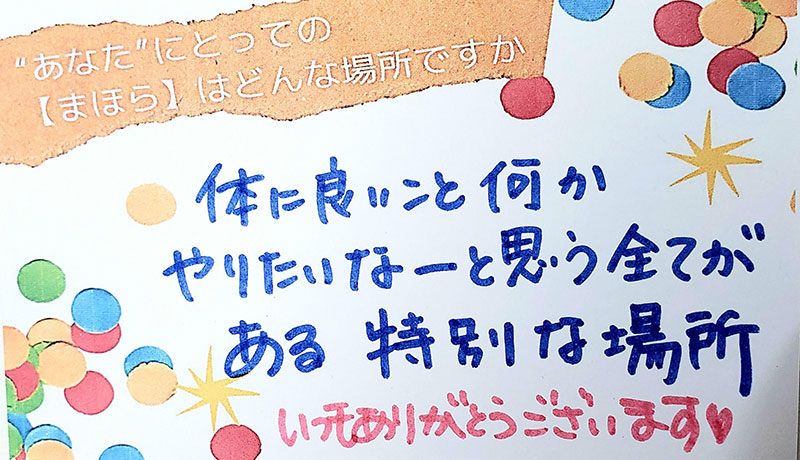 “あなた”にとっての
【まほら】はどんな場所ですか
体に良いこと何か
やりたいなーと思う全てが
ある 特別な場所
いつもありがとうございます♡